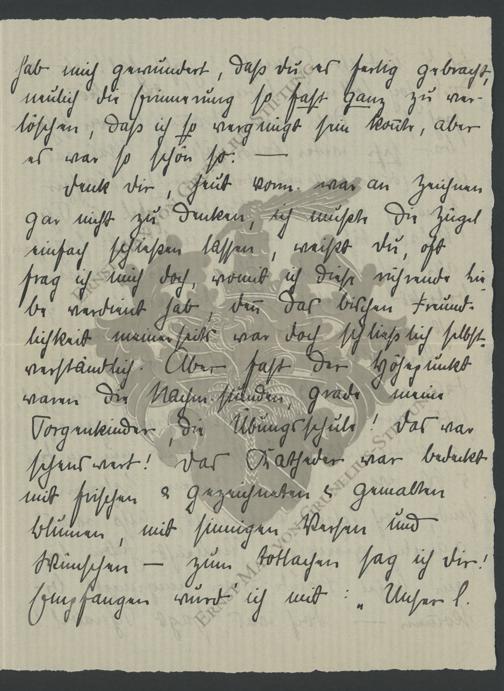 hab mich gewundert, daß du es fertig gebracht,
neulich die Erinnerung so fast ganz zu ver-
löschen, daß ich so vergnügt sein konnte, aber
es war so schön so. —
Denk dir, heut vorm. war an Zeichnen
gar nicht zu denken, ich mußte die Zügel
einfach schießen lassen, weißt du, oft
frag ich mich doch, womit ich diese rührende Lie-
be verdient hab, denn das bischen Freund-
lichkeit meinerseits war doch schließlich selbst-
verständlich. Aber fast der Höhepunkt
waren die Nachm.stunden, grade meine
Sorgenkinder, die Übungsschule! Das war
sehenswert! Das Katheder war bedeckt
mit frischen & gezeichneten & gemalten
Blumen, mit sinnigen Versen und
Wünschen — zum Totlachen sag ich dir!
Empfangen wurd' ich mit: „Unser l.
ERNST-MAX-VON-GRUNELIUS-STIFTUNG